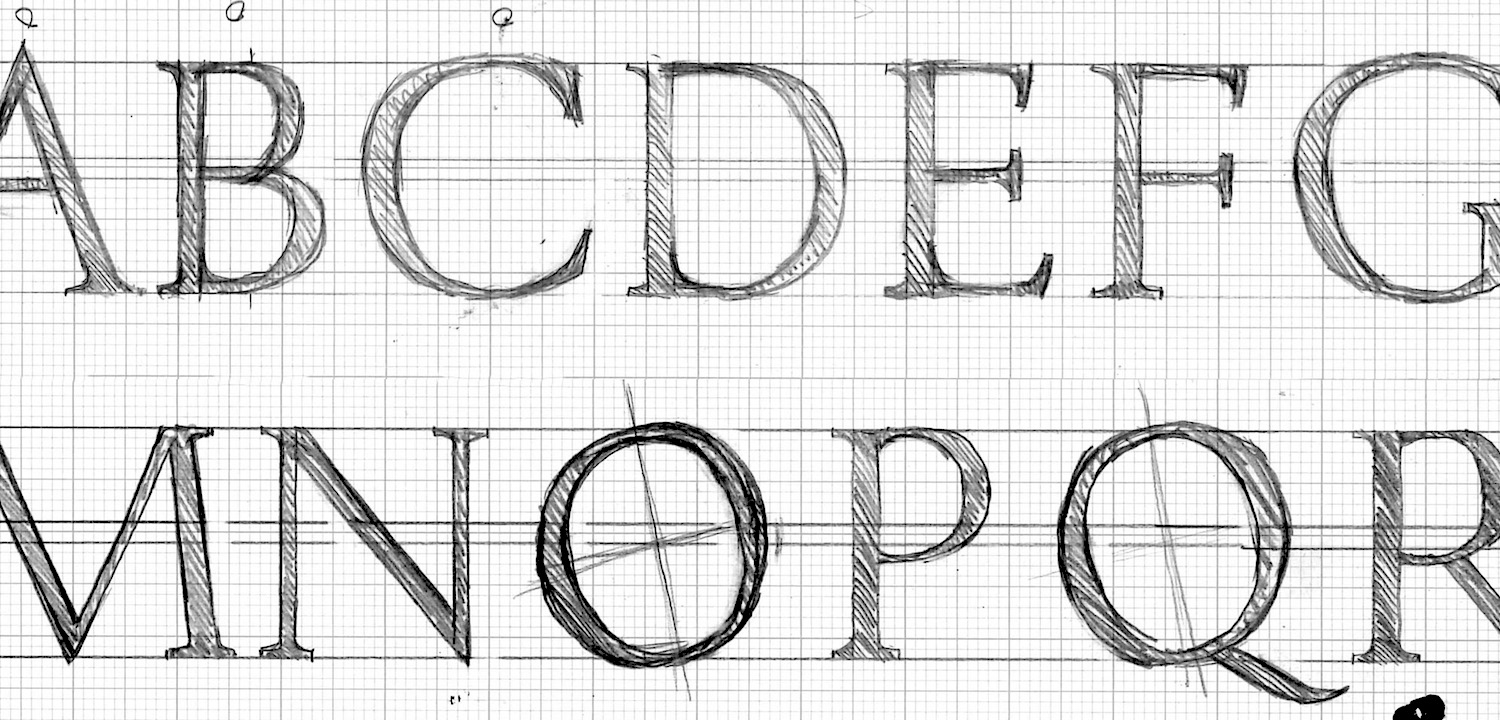 ABCDEFG
MNOPQR